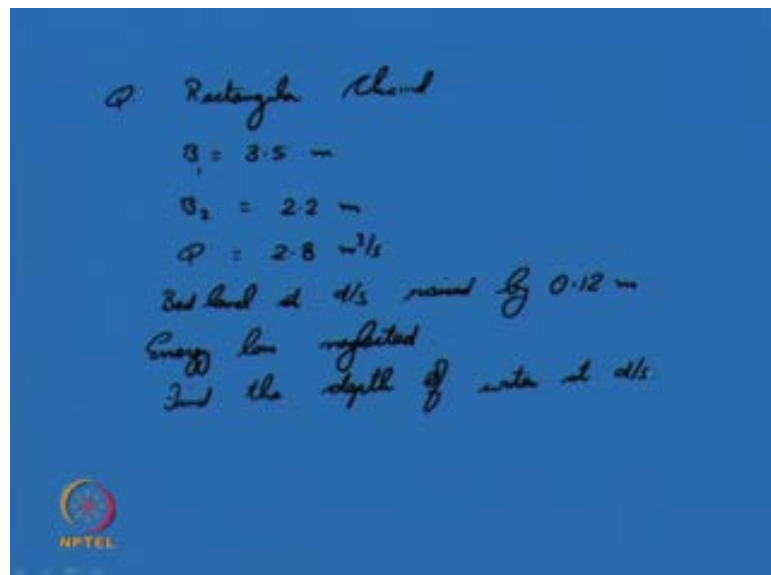 Q. Rectangular Channel
B₁ = 3.5 m
B₂ = 2.2 m
Q = 2.8 m³/s
Bed level at d/s raised by 0.12 m
Energy loss neglected
Find the depth of water at d/s
NPTEL